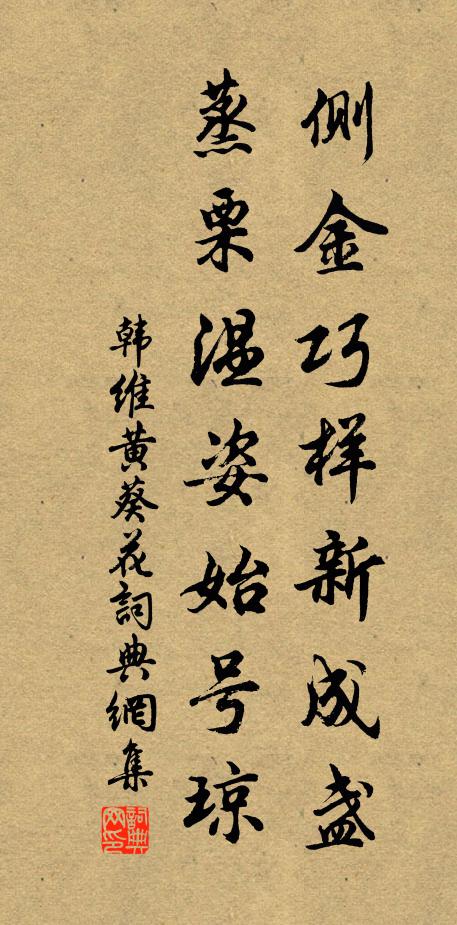 侧金巧样新成盏
蒸栗温姿始号琼
韩维黄葵花詞典網集
詞典网印